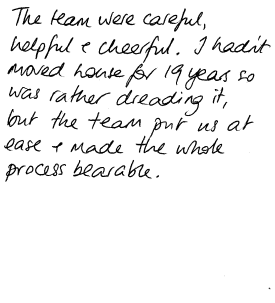 The team were careful,
helpful & cheerful. I hadn't
moved house for 19 years so
was rather dreading it,
but the team put us at
ease & made the whole
process bearable.